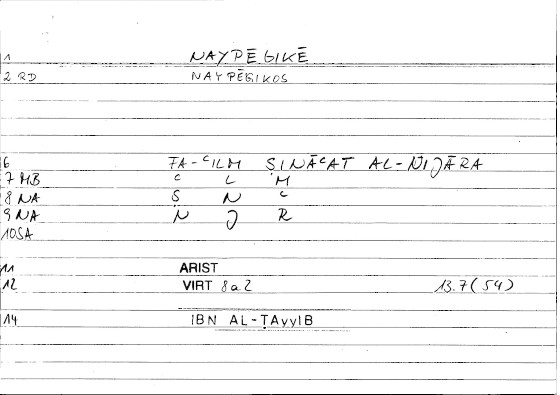 1 NAYPĒGIKĒ
2 RD NAYPĒGIKOS
6 FA-ʿILM ṢINĀʿAT AL-NIJĀRA
7 MB ʿ L M
8 NA Ṣ N ʿ
9 NA N J R
10SA
11 ARIST
12 VIRT 8a2 13.7(54)
14 IBN AL-ṬAYYIB